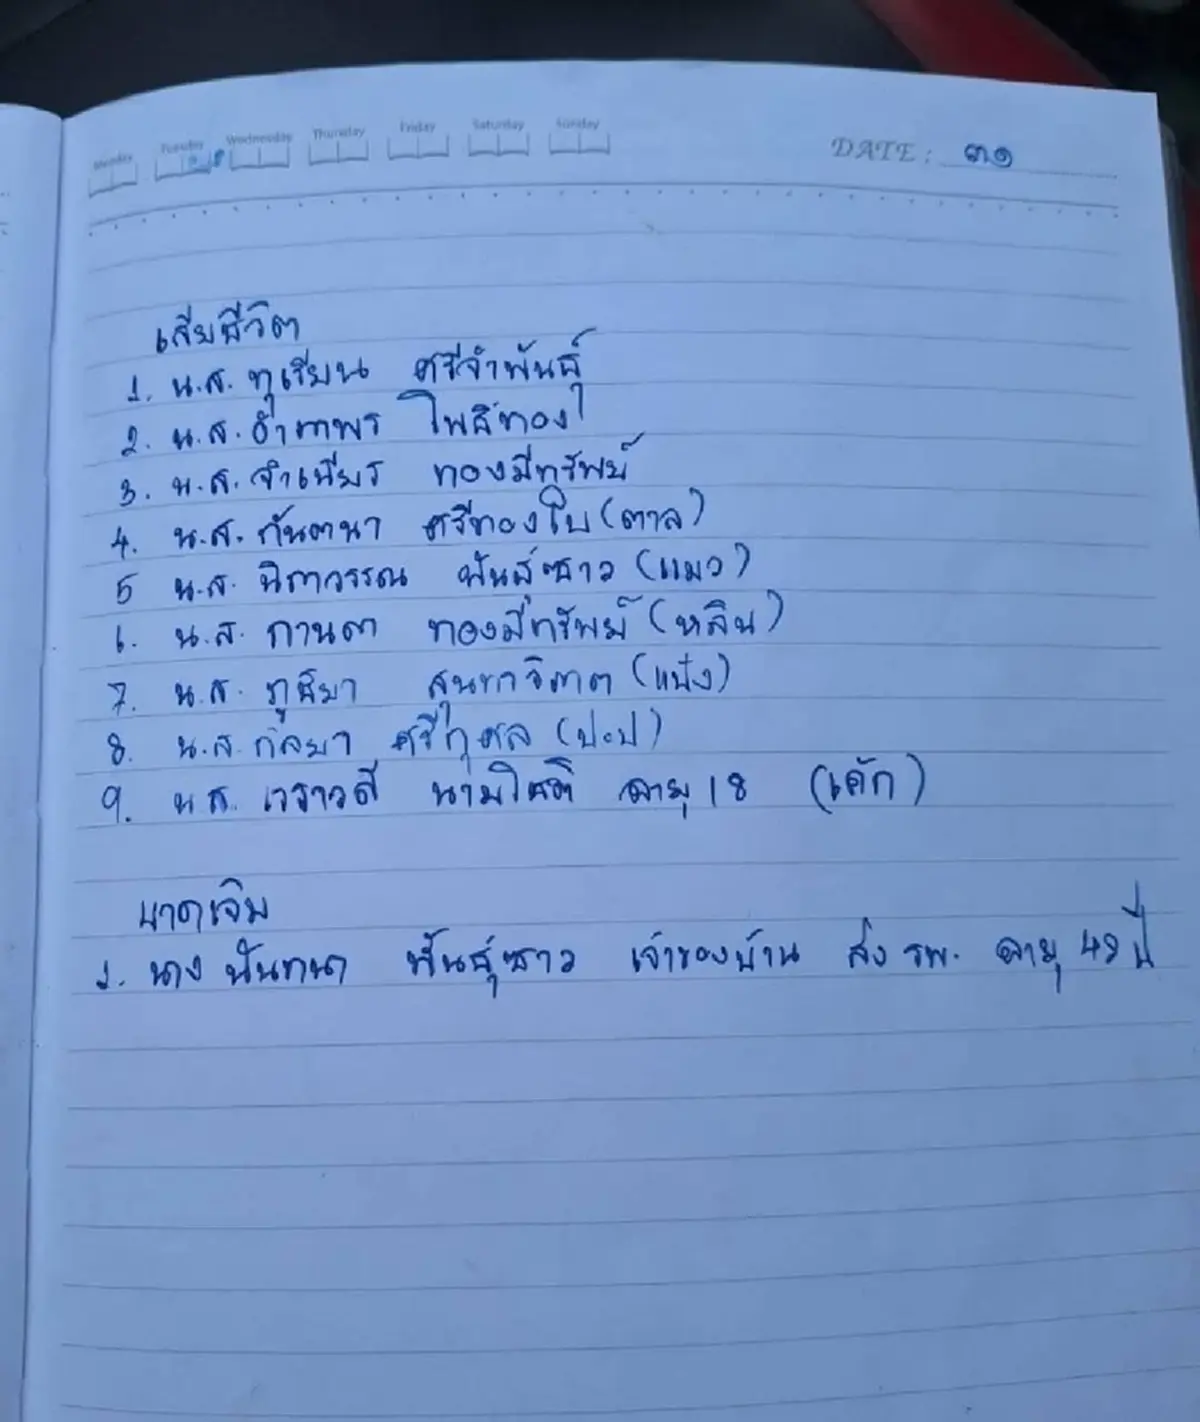 Monday Tuesday Wednesday Thursday Friday Saturday Sunday
DATE : ๓๑
เสียชีวิต
1. น.ส. ทุเรียน ศรีจำพันธุ์
2. น.ส. อำภาพร โพธิ์ทอง
3. น.ส. จำเนียร ทองมีทรัพย์
4. น.ส. กันตนา ศรีทองใบ (ตาล)
5 น.ส. นิภาวรรณ พันธุ์ซาว (แมว)
6. น.ส. กานดา ทองมีทรัพย์ (หลิน)
7. น.ส. ภูษิมา (แป้ง)
8. น.ส. กัลยา ศรีกุศล (ปะป)
9. น.ส. วราวดี นามโคตร อายุ 18 (เค้ก)
บาดเจ็บ
1. นาง นันทนา พันธุ์ซาว เจ้าของบ้าน ส่ง รพ. อายุ 49 ปี